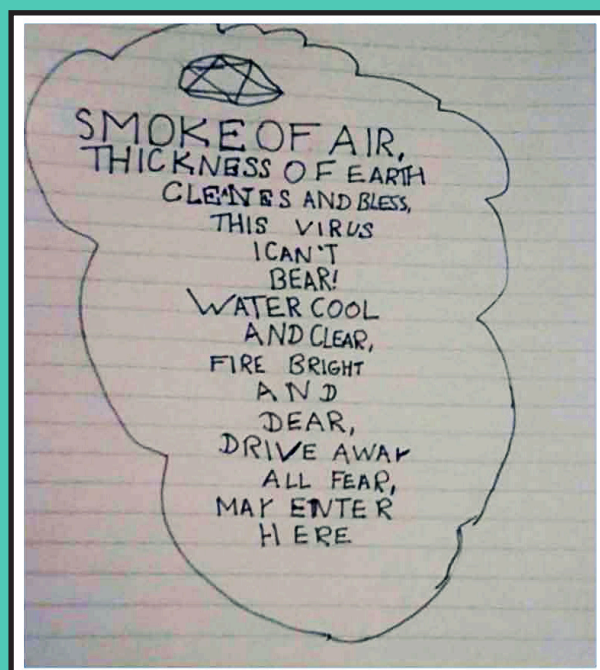 SMOKE OF AIR,
THICKNESS OF EARTH
CLEANES AND BLESS,
THIS VIRUS
I CAN'T
BEAR!
WATER COOL
AND CLEAR,
FIRE BRIGHT
AND
DEAR,
DRIVE AWAY
ALL FEAR,
MAY ENTER
HERE